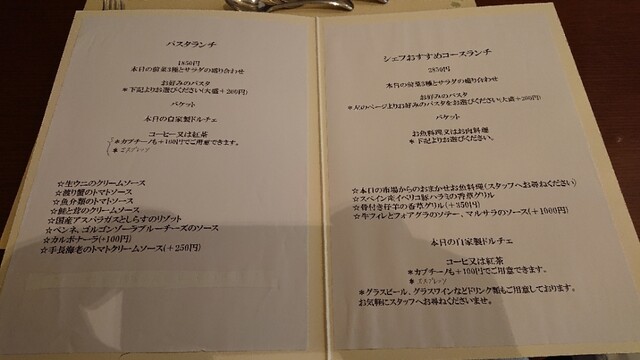 パスタランチ
1850円
本日の前菜3種とサラダの盛り合わせ
お好みのパスタ
＊下記よりお選びください(大盛＋200円)
バケット
本日の自家製ドルチェ
コーヒー又は紅茶
＊カプチーノも＋100円でご用意できます。
＊エスプレッソ
☆生ウニのクリームソース
☆渡り蟹のトマトソース
☆魚介類のトマトソース
☆鮭と茸のクリームソース
☆国産アスパラガスとしらすのリゾット
☆ペンネ、ゴルゴンゾーラブルーチーズのソース
☆カルボナーラ(+100円)
☆手長海老のトマトクリームソース(＋250円)
シェフおすすめコースランチ
2850円
本日の前菜3種とサラダの盛り合わせ
お好みのパスタ
＊左のページよりお好みのパスタをお選びください(大盛＋200円)
バケット
お魚料理又はお肉料理
＊下記よりお選びください。
☆本日の市場からのおまかせお魚料理(スタッフへお尋ねください)
☆スペイン産イベリコ豚ハラミの香草グリル
☆骨付き仔羊の香草グリル(＋350円)
☆牛フィレとフォアグラのソテー、マルサラのソース(＋1000円)
本日の自家製ドルチェ
コーヒー又は紅茶
＊カプチーノも＋100円でご用意できます。
＊エスプレッソ
＊グラスビール、グラスワインなどドリンク類もご用意しております。
お気軽にスタッフへお尋ねくださいませ。